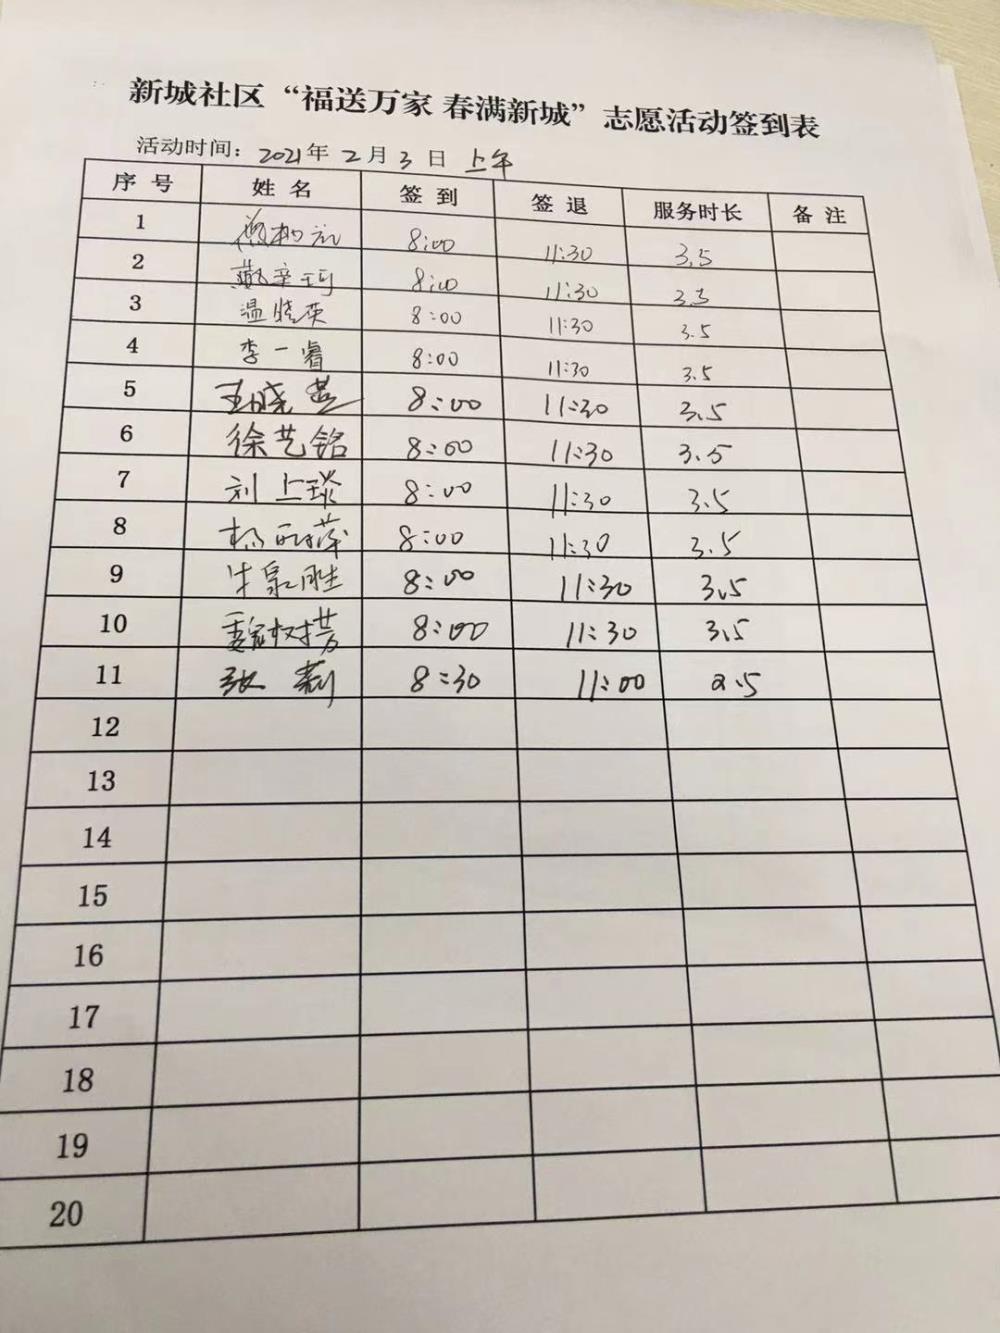 新城社区“福送万家 春满新城”志愿活动签到表
活动时间：2021年2月3日 上午
序号 姓名 签到 签退 服务时长 备注
1 8:00 11:30 3.5
2 8:00 11:30 3.5
3 温晓英 8:00 11:30 3.5
4 李一睿 8:00 11:30 3.5
5 王晓燕 8:00 11:30 3.5
6 徐艺铭 8:00 11:30 3.5
7 刘上琰 8:00 11:30 3.5
8 8:00 11:30 3.5
9 牛泉胜 8:00 11:30 3.5
10 8:00 11:30 3.5
11 张莉 8:30 11:00 2.5
12
13
14
15
16
17
18
19
20